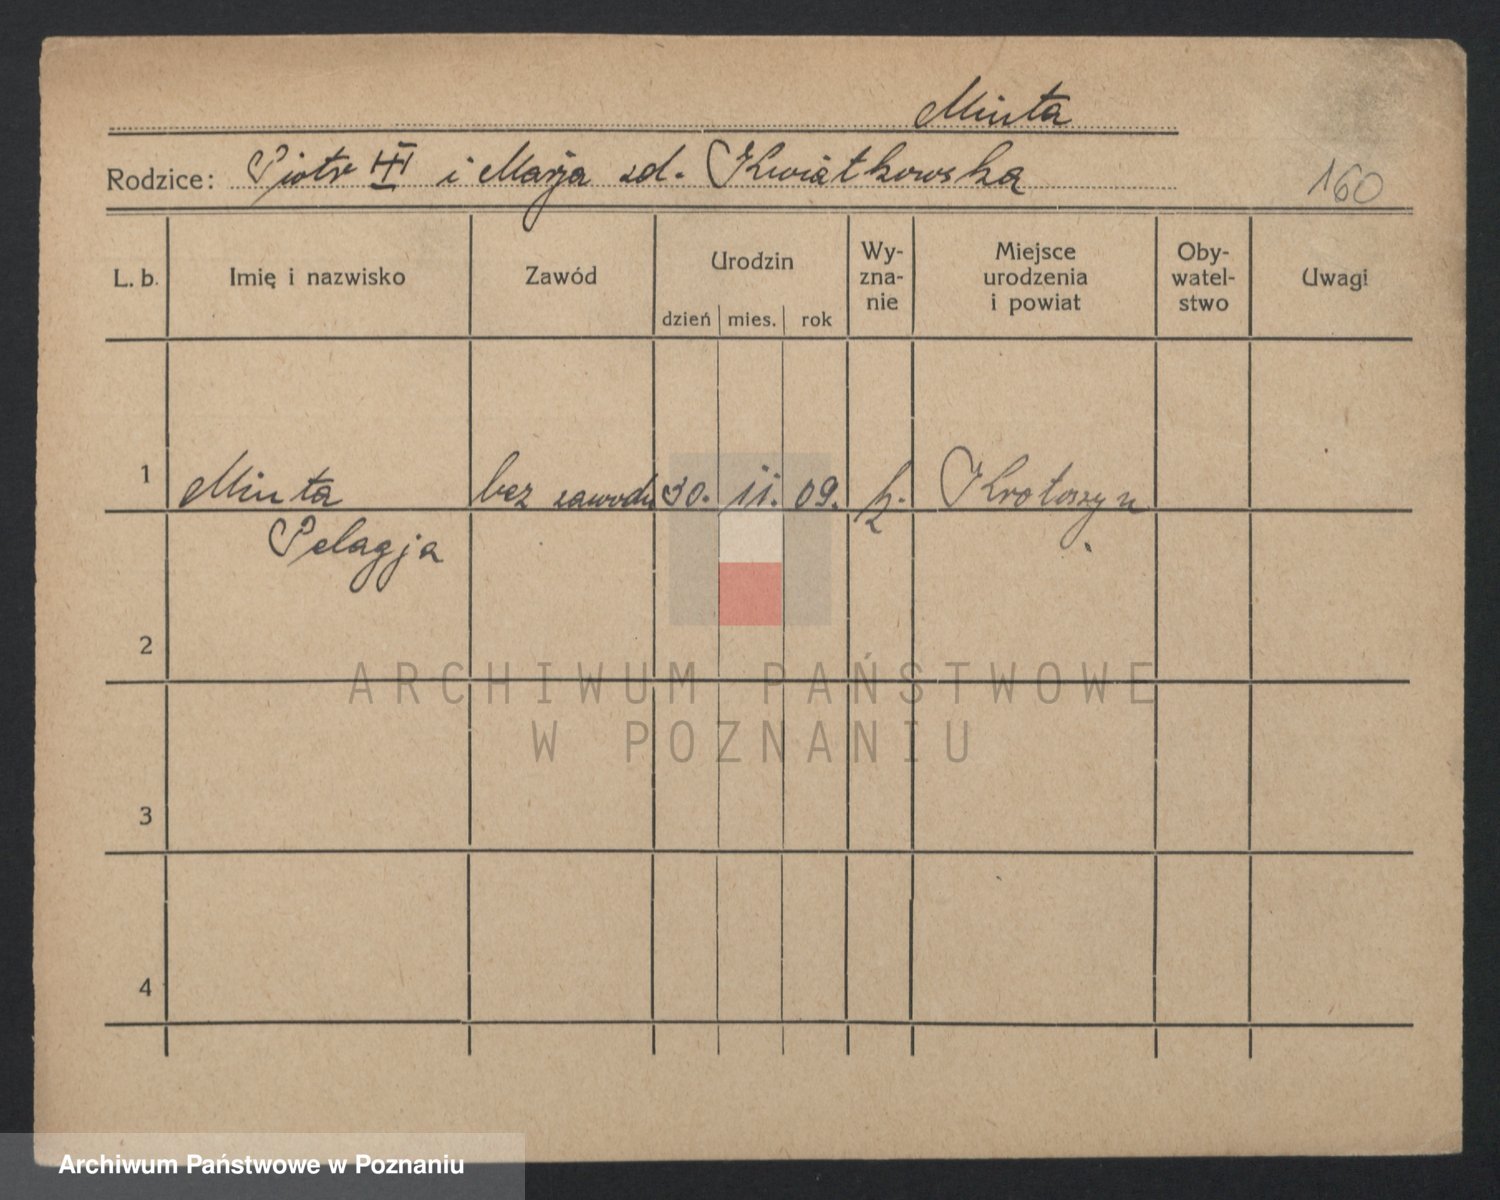 Minta
Rodzice: Piotr i Marja zd. Kwiatkowska
160
L. b. Imię i nazwisko Zawód Urodzin Wy-zna-nie Miejsce urodzenia i powiat Oby-watel-stwo Uwagi
dzień mies. rok
1 Minta bez zawodu 30. 11. 09. k. Krotoszyn
Pelagja
2
ARCHIWUM PAŃSTWOWE
W POZNANIU
3
4
Archiwum Państwowe w Poznaniu